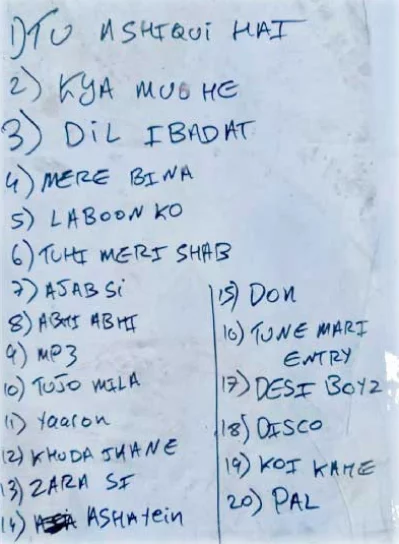 1) TU ASHIQUI HAI
2) KYA MUJHE
3) DIL IBADAT
4) MERE BINA
5) LABOON KO
6) TUHI MERI SHAB
7) AJAB Si
8) ABHI ABHI
9) MP3
10) TUJO MILA
11) Yaaron
12) KHUDA JHANE
13) ZARA SI
14) ASHAtein
15) DON
16) TUNE MARI
ENTRY
17) DESI BOYZ
18) DISCO
19) KOI KAHE
20) PAL